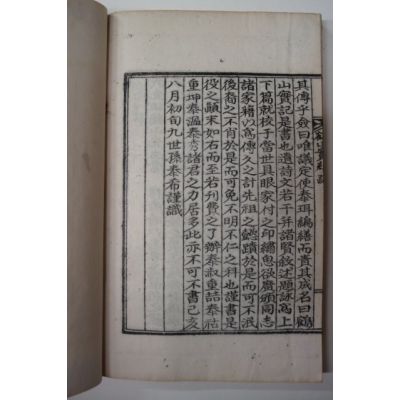 其傳乎僉曰唯議定使泰珥編繕而責其成名曰鶴
山實記是書也遺詩文若干幷諸賢敘述題詠爲上
下篇就校于當世具眼家付之印繡思欲廣頒同志
諸家藉以爲傳久之計先祖之懿蹟於是而可不泯
後裔之不肖於是而可免不明不仁之科也謹書是
役之顚末如右而至若刊費之了辦泰淑重喆泰祜
重坤泰溫泰 諸君之力居多此亦不可不書己亥
八月初旬九世孫泰希謹識
山實記